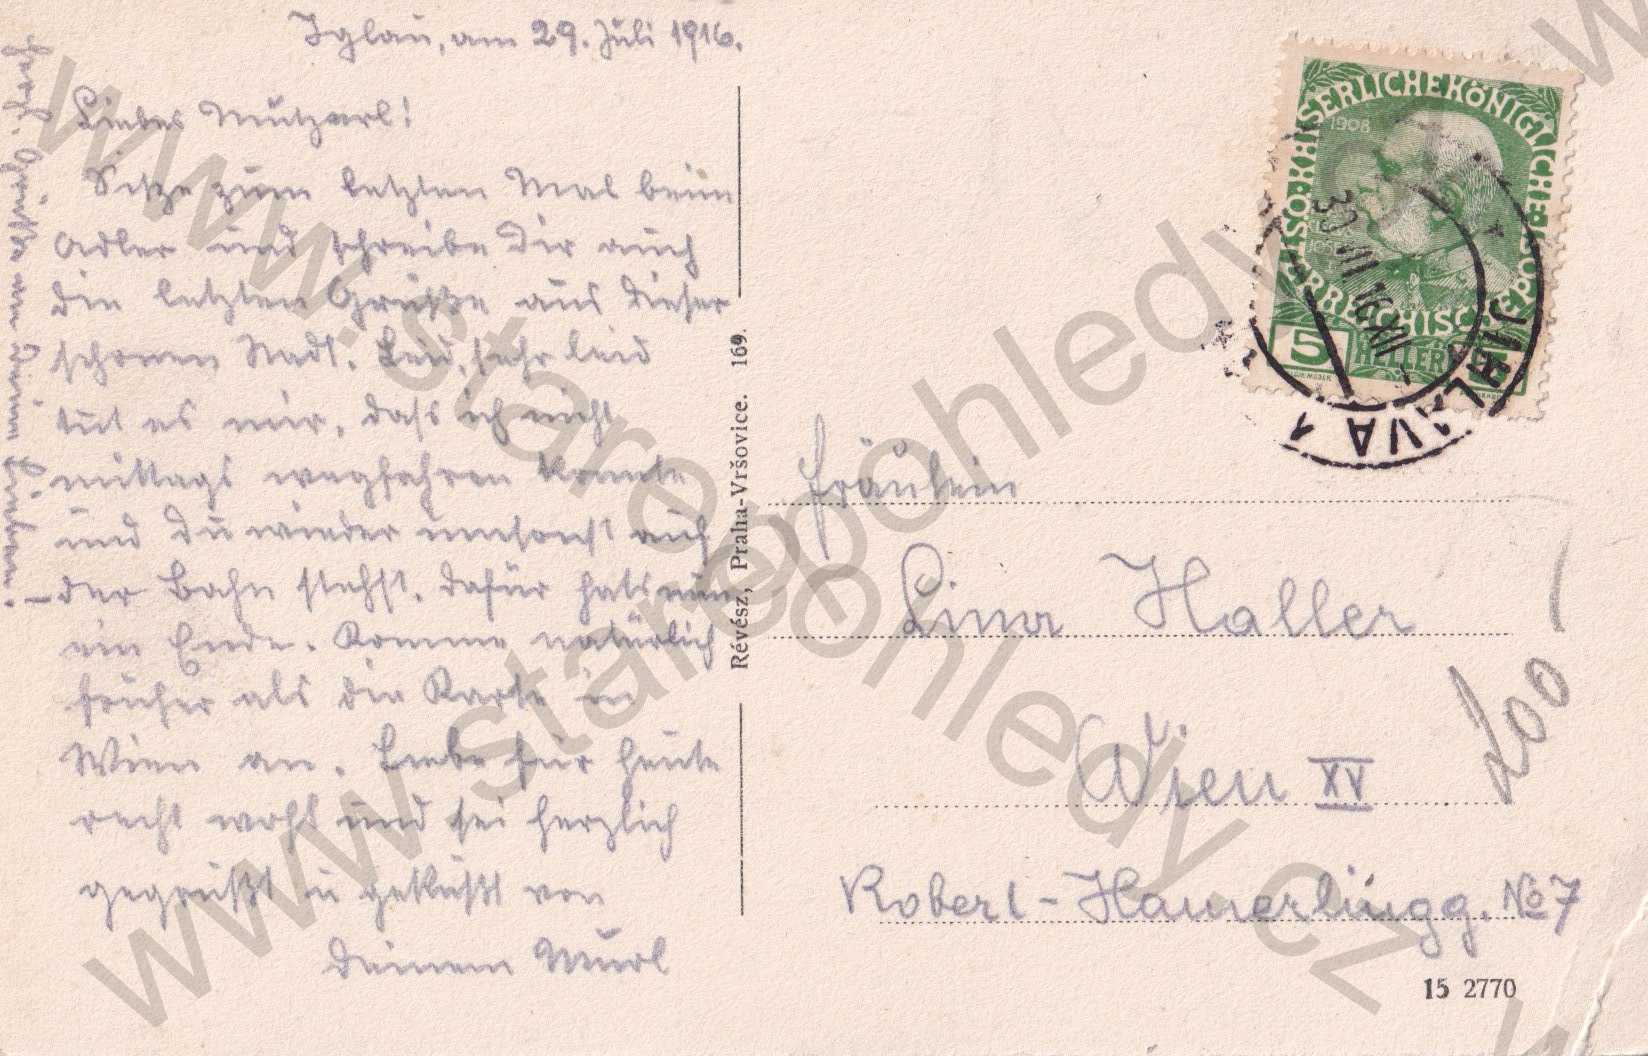 Iglau, am 29. Juli 1916.
Liebes Mutzerl!
Sitze zum letzten Mal beim
Adler und schreibe Dir auch
die letzten Grüße aus dieser
schönen Stadt. Leid, sehr leid
tut es mir, dass ich nicht
mittags wegfahren konnte
und Du wieder umsonst auf
der Bahn stehst. Dafür hats nun
ein Ende. Komme natürlich
früher als die Karte in
Wien an. Lebe für heute
recht wohl und sei herzlich
gegrüßt u geküßt von
Deinem Murl
Herzl. Grüße an Deine Lieben.
Révész, Praha-Vršovice. 169.
KAISERLICHE KÖNIGLICHE
ÖSTERREICHISCHE POST
1908
5 HELLER 5
JIHLAVA 1
30 VII 16 XII
Fräulein
Lina Haller
Wien XV
Robert-Hamerlingg. No 7
200
15 2770
www.starepohledy.cz
www.starepohledy.cz